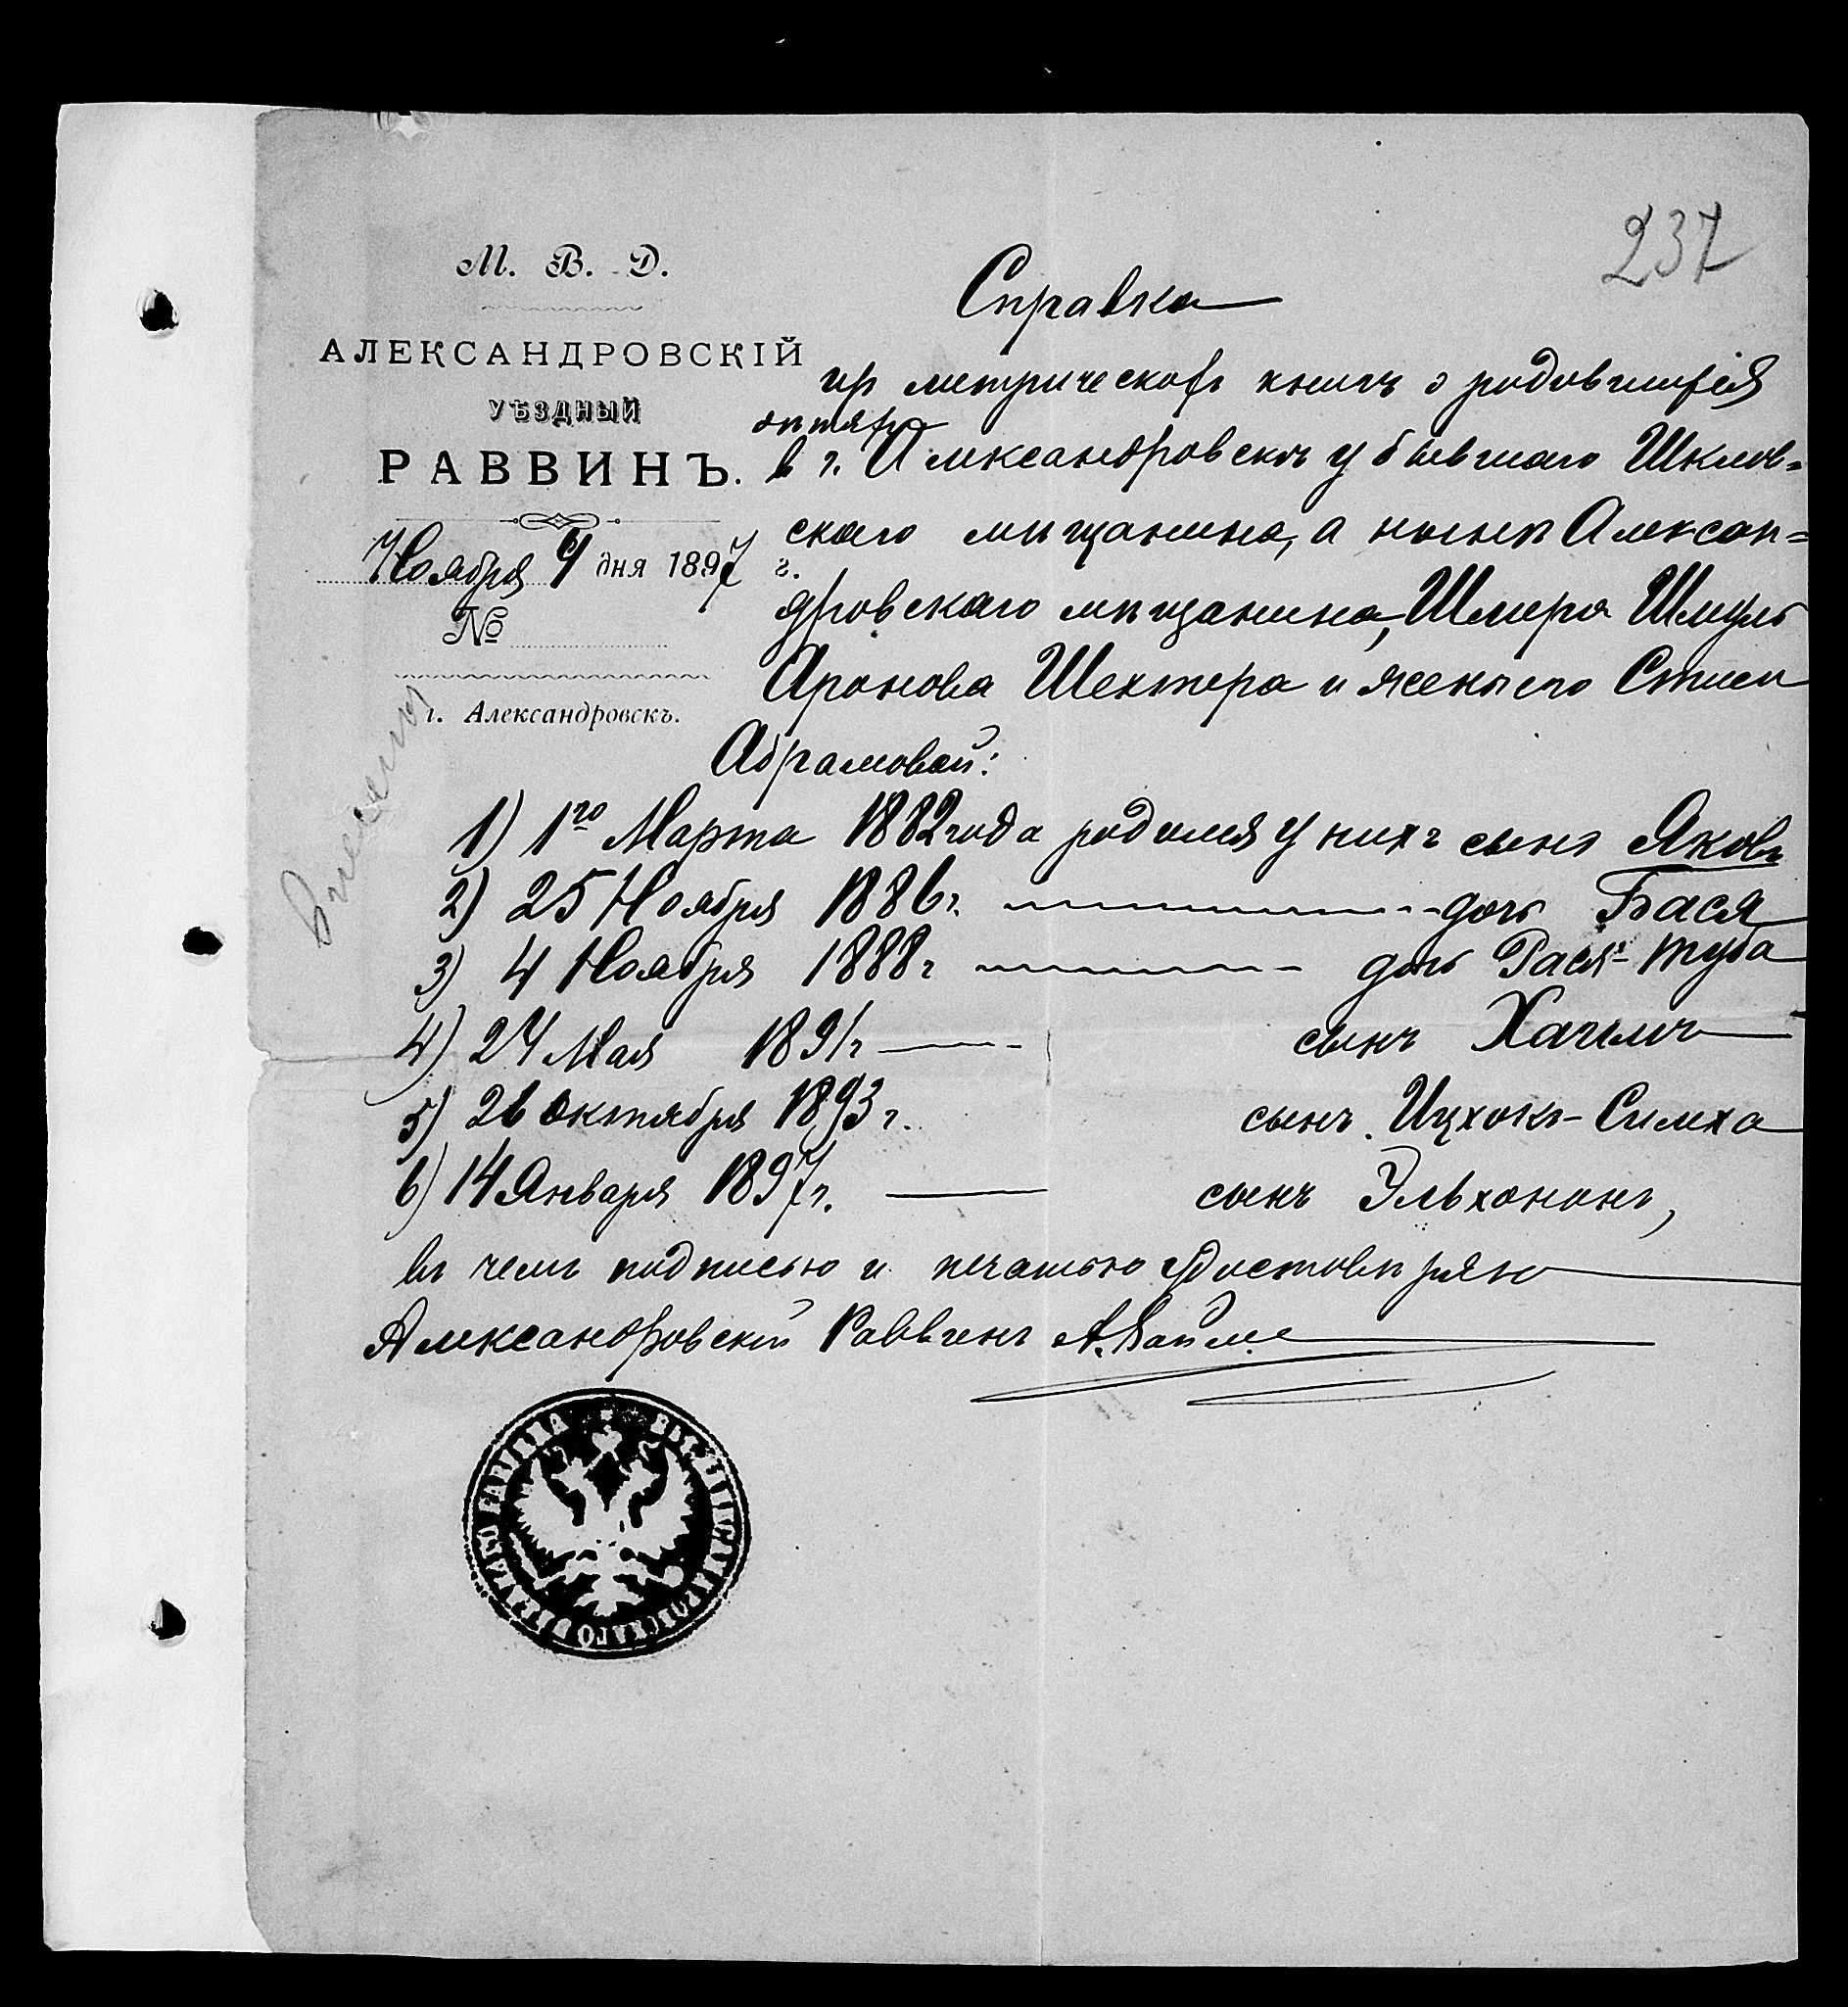 237
М. В. Д.
АЛЕКСАНДРОВСКІЙ
УѢЗДНЫЙ
РАВВИНЪ.
Ноября 9 дня 1897 г.
№
г. Александровскъ.
Внесена
Справка
изъ метрической книги о родовшихся
евреяхъ
в г. Александровскѣ у бывшаго Шклов=
скаго мѣщанина, а нынѣ Алексан=
дровскаго мѣщанина, Шмера Шмуль
Аронова Шехтера и жены его Стиси
Абрамовой:
1) 1го Марта 1882 года родился у нихъ сынъ Яковъ
2) 25 Ноября 1886 г. дочь Бася
3) 4 Ноября 1888 г дочь Рася-Туба
4) 24 Мая 1891 г сынъ Хаимъ
5) 26 октября 1893 г. сынъ Ицхокъ-Симха
6) 14 Января 1897 г. сынъ Эльхононъ,
въ чемъ подписью и печатью удостовѣряю
Александровскій Раввинъ А.